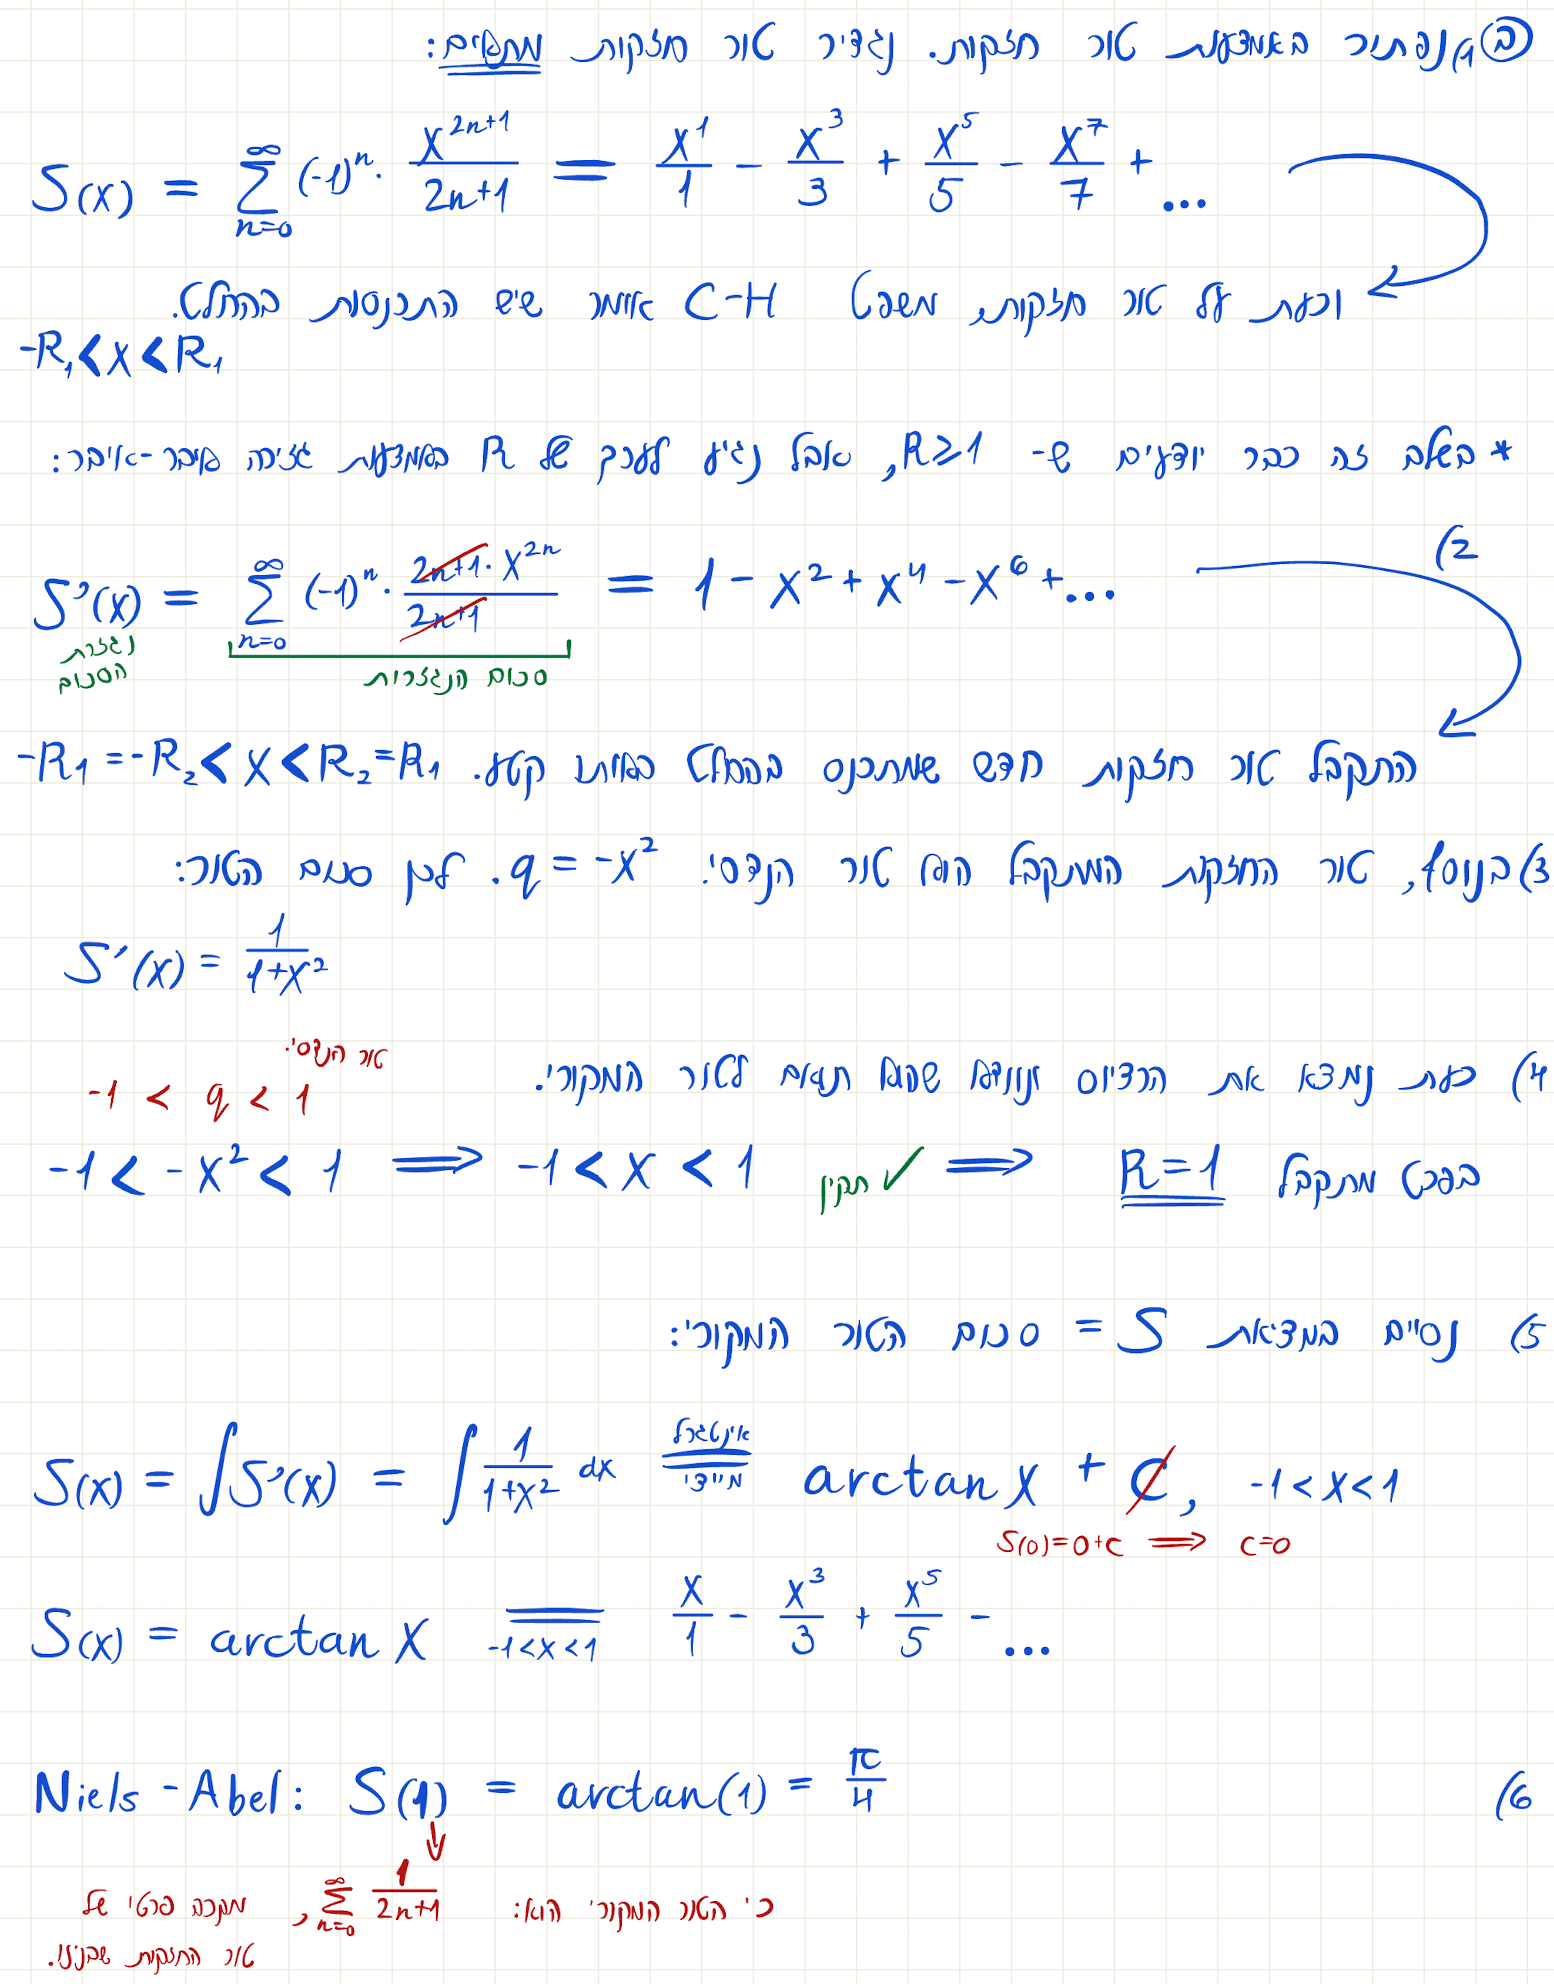 ב) 1) נפתור באמצעות טור חזקות. נגדיר טור חזקות מתאים:
S(x) = ∑_{n=0}^{∞} (-1)^n · x^{2n+1}/(2n+1) = x^1/1 - x^3/3 + x^5/5 - x^7/7 + ...
וכעת על טור חזקות, משפט C-H אומר שיש התכנסות בהחלט.
-R₁ < x < R₁
* בשלב זה כבר יודעים ש- R ≥ 1, אבל נגיע לערך של R באמצעות גזירה איבר-איבר:
2)
S'(x) = ∑_{n=0}^{∞} (-1)^n · (2n+1 · x^{2n})/(2n+1) = 1 - x^2 + x^4 - x^6 + ...
נגזרת הסכום
סכום הנגזרות
התקבל טור חזקות חדש שמתכנס בהחלט באותו קטע. -R₁ = -R₂ < x < R₂ = R₁
3) בנוסף, טור החזקות המתקבל הוא טור הנדסי. q = -x^2. לכן סכום הטור:
S'(x) = 1/(1+x^2)
4) כעת נמצא את הרדיוס ונוודא שהוא תואם לטור המקורי.
טור הנדסי.
-1 < q < 1
-1 < -x^2 < 1 ⟹ -1 < x < 1 תקין ✓ ⟹ R = 1 בפרט מתקבל
5) נסיים במציאת S = סכום הטור המקורי:
S(x) = ∫S'(x) = ∫ 1/(1+x^2) dx = אינטגרל מיידי arctan x + C, -1 < x < 1
S(0) = 0 + C ⟹ C = 0
S(x) = arctan x = -1<x<1 x/1 - x^3/3 + x^5/5 - ...
6) Niels-Abel: S(1) = arctan(1) = π/4
כי הטור המקורי הוא: ∑_{n=0}^{∞} 1/(2n+1), מקרה פרטי של
טור החזקות שבנינו.